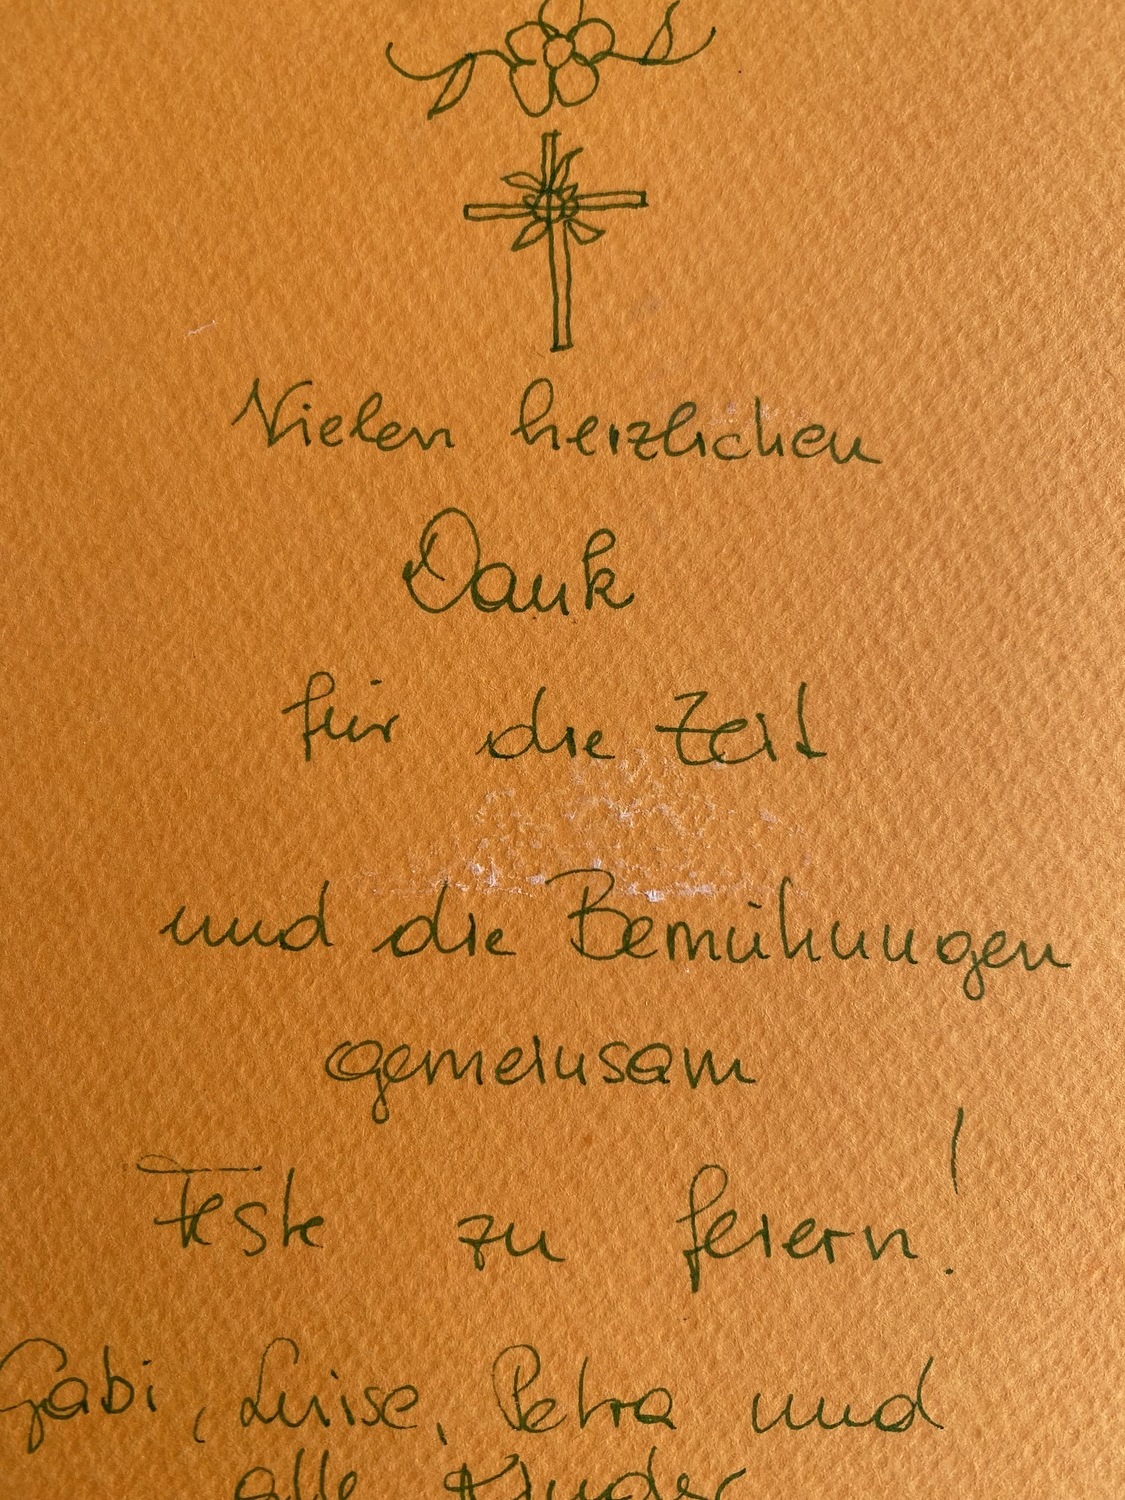 Vielen herzlichen
Dank
für die Zeit
und die Bemühungen
gemeinsam
Feste zu feiern!
Gabi, Luise, Petra und
alle Kinder